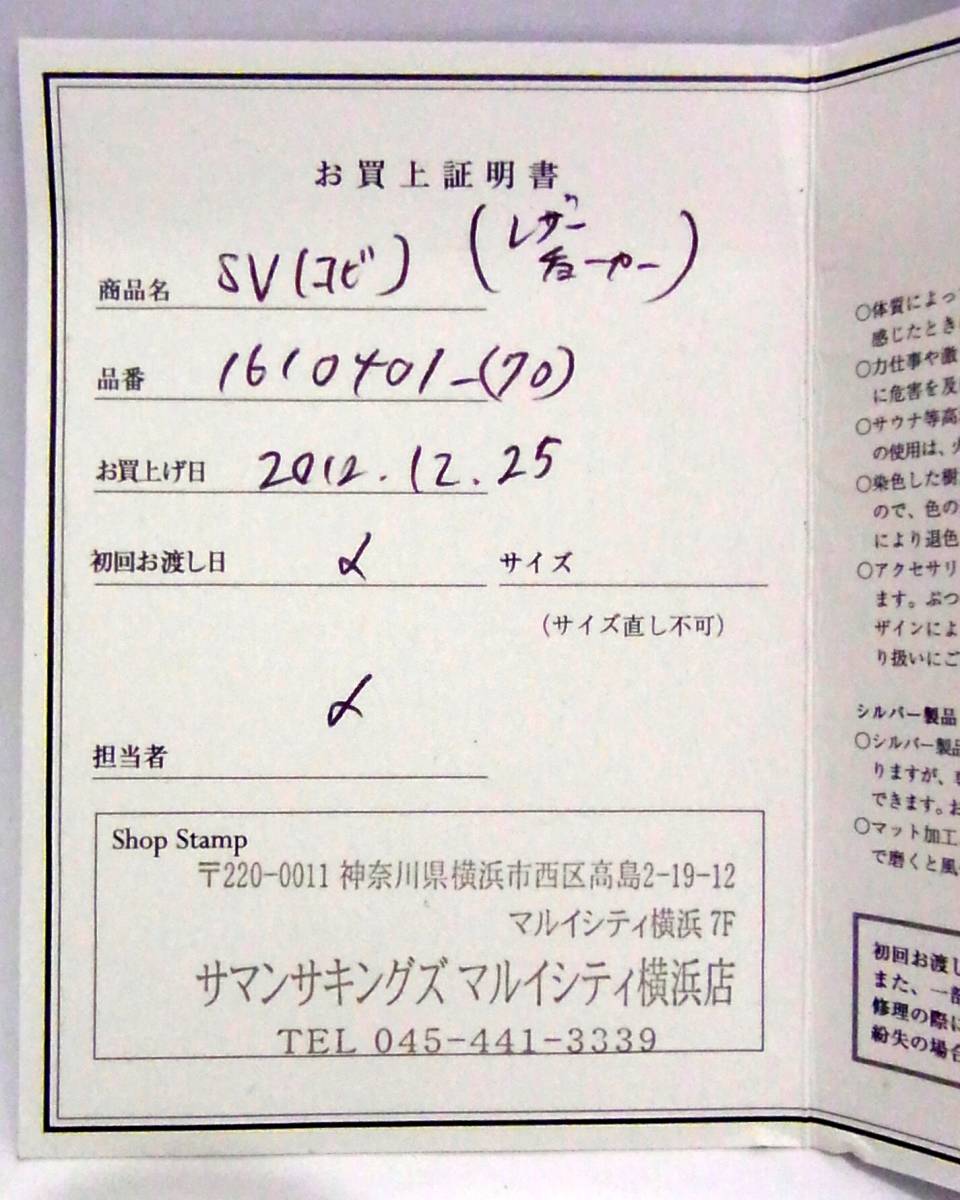 お買上証明書
商品名 SV(コビ) (レザーチョーカー)
品番 1610401-(70)
お買上げ日 2012.12.25
初回お渡し日 サイズ
(サイズ直し不可)
担当者
Shop Stamp
〒220-0011 神奈川県横浜市西区高島2-19-12
マルイシティ横浜 7F
サマンサキングズ マルイシティ横浜店
TEL 045-441-3339
○体質によっ
感じたとき
○力仕事や激
に危害を及
○サウナ等高
の使用は、火
○染色した樹
ので、色の
により退色
○アクセサリ
ます。ぶつ
ザインによ
り扱いにご
シルバー製品
○シルバー製品
りますが、
できます。お
○マット加工
で磨くと風
初回お渡し
また、一部
修理の際に
紛失の場合